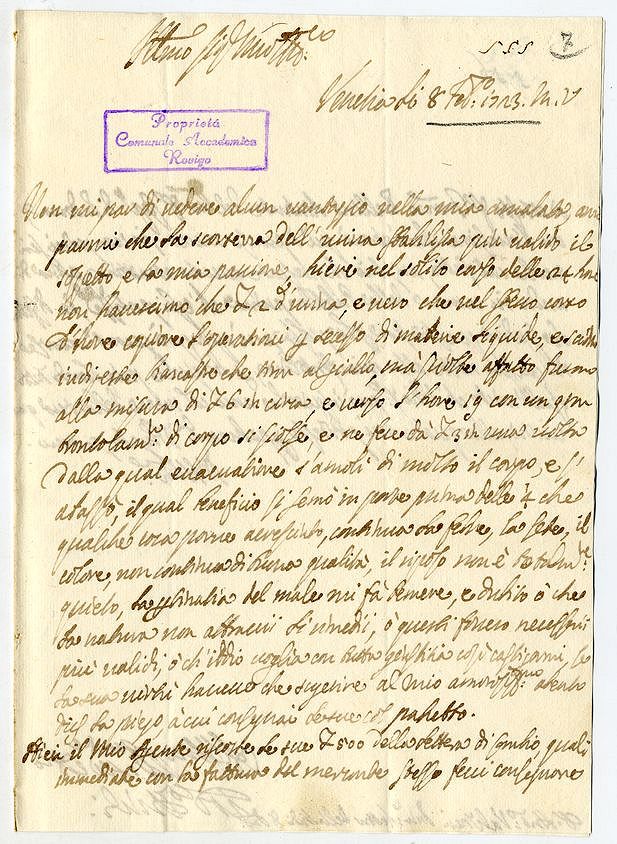 555 7
Illmo Sig.
Venetia li 8 Feb.º 1723. M. V.
Proprietà
Comunale Accademica
Rovigo
Non mi par di vedere alcun vantaggio nella mia amalata, anzi
parmi che la scarsezza dell'urina stabilisca più valido il
sospetto e la mia passione, hieri nel solito corso delle 24 hore
non havessimo che 2 d'urina, e vero che nel stesso corso
d'hore operationi secesso di materie liquide, e
biancastre che al giallo, mà sciolte affatto furono
alla misura di 6 in circa, e verso l'hore 19 con un gran
di corpo si sciolse, e ne fece da 3 in una volta
dalla qual evacuatione s'amolì di molto il corpo, e s'
abassò, il qual beneficio si in parte prima delle 4 che
qualche cosa parve accresciuto, continua la febre, la sete, il
calore, non continua di buona qualità, il riposo non è
quieto, la del male mi fà temere, e dubito ò che
la natura non li rimedij, ò questi fossero necessarij
più validi, ò ch'iddio voglia con tutta giustitia così castigarmi, se
la sua virtù havesse che sugerire al mio
la prego, à cui consegnai le sue col pachetto.
Hieri il mio riscosse le sue 500 della lettera di cambio, quali
immediate con la fattura del mercante stesso feci consegnare